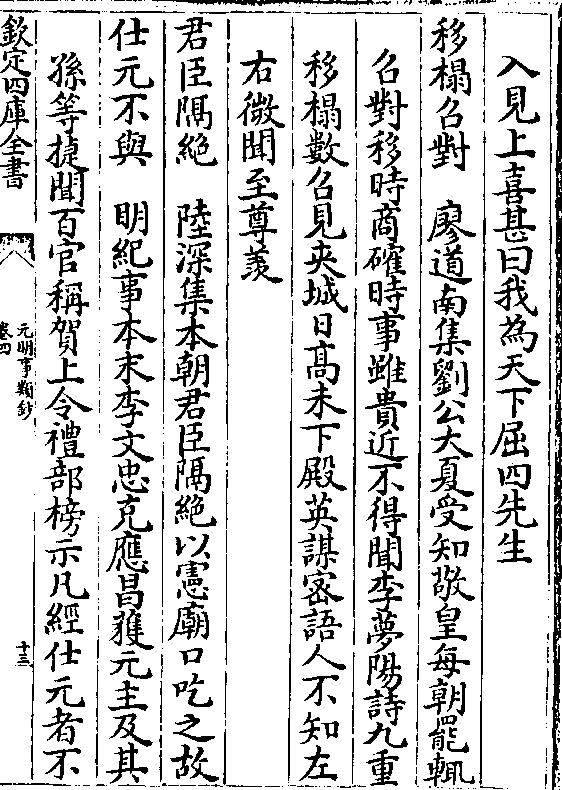 入見上喜甚曰我為天下屈四先生
移榻召對　廖道南集劉公大夏受知敬皇每朝罷輒
召對移時商確時事雖貴近不得聞李夢陽詩九重
移榻數召見夾城日髙未下殿英謀宻語人不知左
右微聞至尊羡
君臣隔絶　陸深集本朝君臣隔絶以憲廟口吃之故
仕元不與　明紀事本末李文忠克應昌獲元主及其
孫等捷聞百官稱賀上令禮部榜示凡經仕元者不
欽定四庫全書
元明事類鈔
卷四
十三